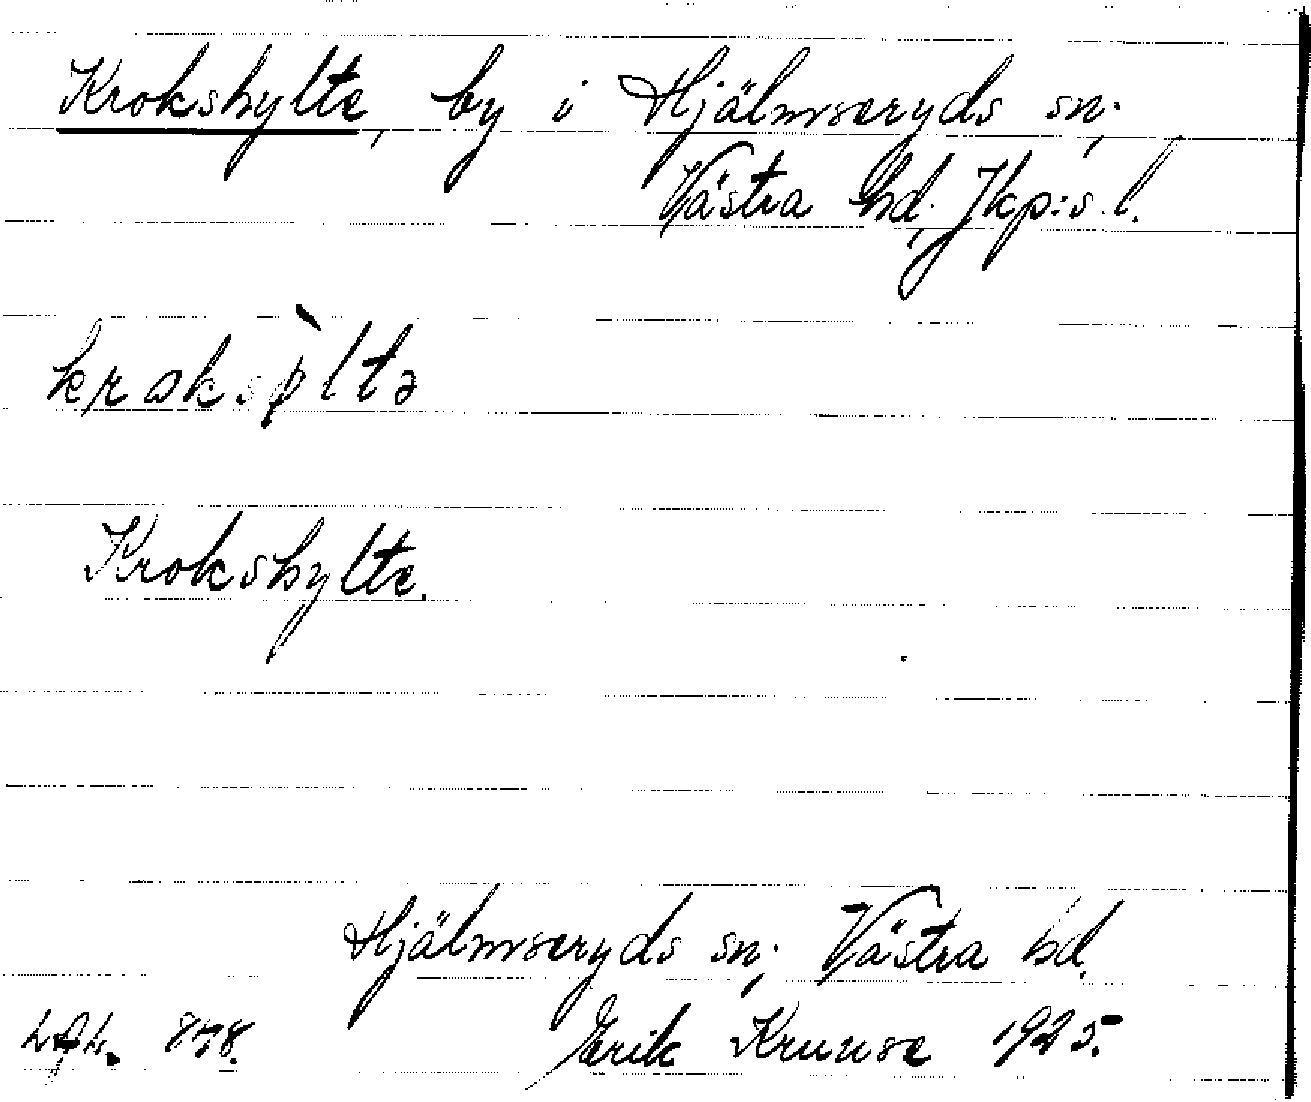 Krokshylte, by i Hjälmseryds sn,
Västra hd, Jkp:s l.
Krokshylte.
Hjälmseryds sn, Västra hd.
878. Erik Kruuse 1925.